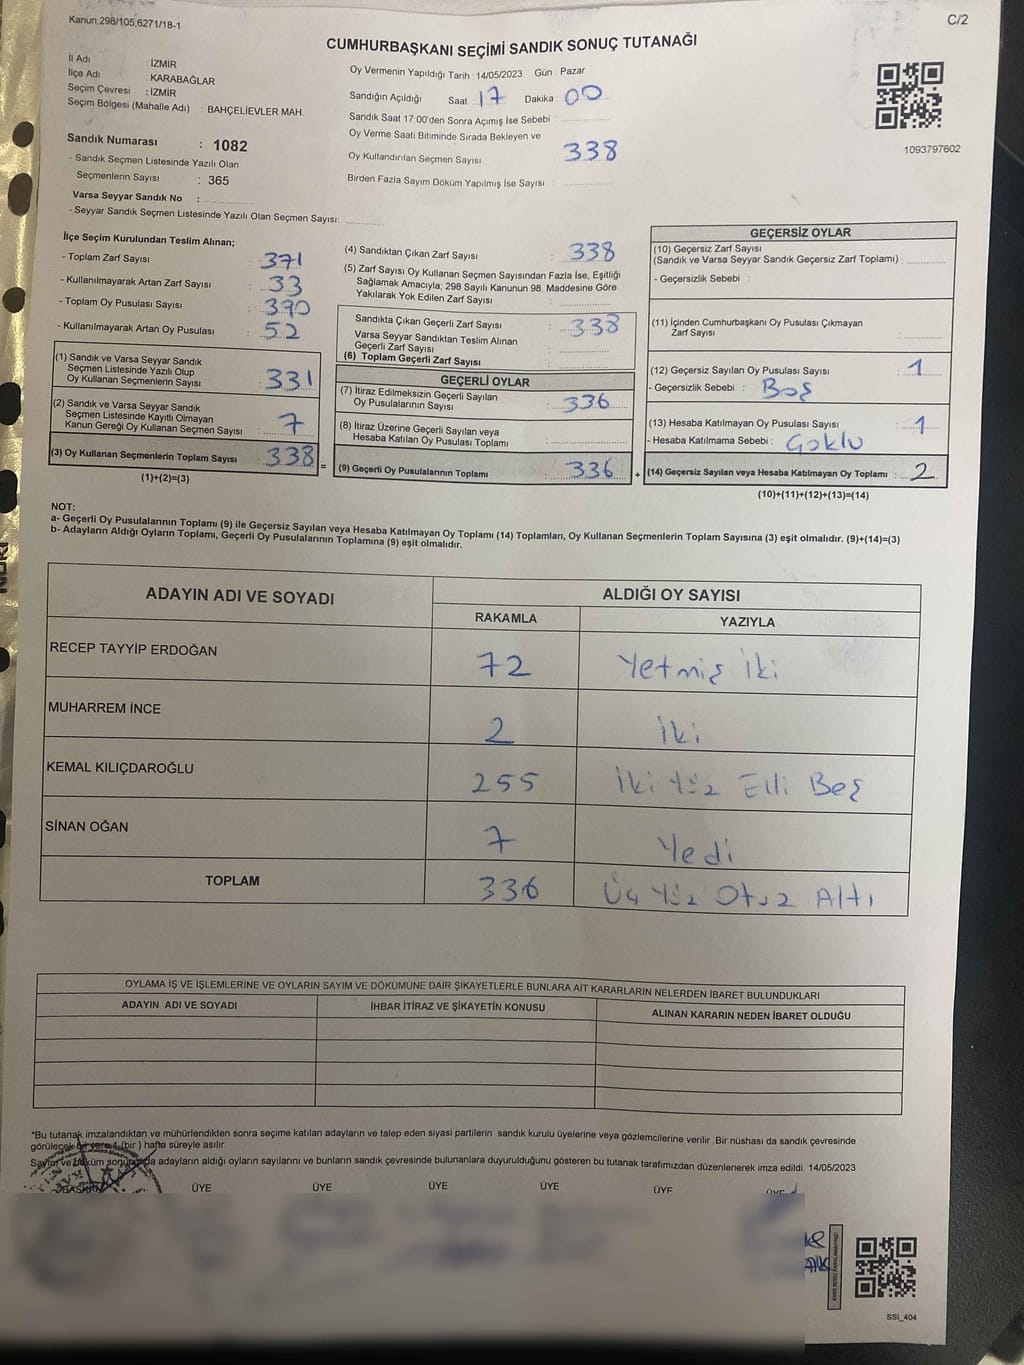 Kanun,298/105,6271/18-1
C/2
CUMHURBAŞKANI SEÇİMİ SANDIK SONUÇ TUTANAĞI
İl Adı : İZMİR
İlçe Adı : KARABAĞLAR
Seçim Çevresi : İZMİR
Seçim Bölgesi (Mahalle Adı) : BAHÇELİEVLER MAH.
Oy Vermenin Yapıldığı Tarih : 14/05/2023 Gün : Pazar
Sandığın Açıldığı Saat : 17 Dakika : 00
Sandık Saat 17:00'den Sonra Açımış İse Sebebi :
Oy Verme Saati Bitiminde Sırada Bekleyen ve
Oy Kullandırılan Seçmen Sayısı 338
Birden Fazla Sayım Döküm Yapılmış İse Sayısı :
1093797602
Sandık Numarası : 1082
- Sandık Seçmen Listesinde Yazılı Olan
Seçmenlerin Sayısı : 365
Varsa Seyyar Sandık No :
- Seyyar Sandık Seçmen Listesinde Yazılı Olan Seçmen Sayısı:
İlçe Seçim Kurulundan Teslim Alınan;
- Toplam Zarf Sayısı : 371
- Kullanılmayarak Artan Zarf Sayısı : 33
- Toplam Oy Pusulası Sayısı : 390
- Kullanılmayarak Artan Oy Pusulası : 52
(1) Sandık ve Varsa Seyyar Sandık
Seçmen Listesinde Yazılı Olup
Oy Kullanan Seçmenlerin Sayısı : 331
(2) Sandık ve Varsa Seyyar Sandık
Seçmen Listesinde Kayıtlı Olmayan
Kanun Gereği Oy Kullanan Seçmen Sayısı : 7
(3) Oy Kullanan Seçmenlerin Toplam Sayısı : 338
(1)+(2)=(3)
(4) Sandıktan Çıkan Zarf Sayısı : 338
(5) Zarf Sayısı Oy Kullanan Seçmen Sayısından Fazla İse, Eşitliği
Sağlamak Amacıyla; 298 Sayılı Kanunun 98. Maddesine Göre
Yakılarak Yok Edilen Zarf Sayısı :
Sandıkta Çıkan Geçerli Zarf Sayısı : 338
Varsa Seyyar Sandıktan Teslim Alınan
Geçerli Zarf Sayısı :
(6) Toplam Geçerli Zarf Sayısı :
=
GEÇERLİ OYLAR
(7) İtiraz Edilmeksizin Geçerli Sayılan
Oy Pusulalarının Sayısı : 336
(8) İtiraz Üzerine Geçerli Sayılan veya
Hesaba Katılan Oy Pusulası Toplamı :
(9) Geçerli Oy Pusulalarının Toplamı : 336
+
GEÇERSİZ OYLAR
(10) Geçersiz Zarf Sayısı
(Sandık ve Varsa Seyyar Sandık Geçersiz Zarf Toplamı) :
- Geçersizlik Sebebi :
(11) İçinden Cumhurbaşkanı Oy Pusulası Çıkmayan
Zarf Sayısı :
(12) Geçersiz Sayılan Oy Pusulası Sayısı : 1
- Geçersizlik Sebebi : Boş
(13) Hesaba Katılmayan Oy Pusulası Sayısı : 1
- Hesaba Katılmama Sebebi : Çoklu
(14) Geçersiz Sayılan veya Hesaba Katılmayan Oy Toplamı : 2
(10)+(11)+(12)+(13)=(14)
NOT:
a- Geçerli Oy Pusulalarının Toplamı (9) ile Geçersiz Sayılan veya Hesaba Katılmayan Oy Toplamı (14) Toplamları, Oy Kullanan Seçmenlerin Toplam Sayısına (3) eşit olmalıdır. (9)+(14)=(3)
b- Adayların Aldığı Oyların Toplamı, Geçerli Oy Pusulalarının Toplamına (9) eşit olmalıdır.
ADAYIN ADI VE SOYADI
ALDIĞI OY SAYISI
RAKAMLA YAZIYLA
RECEP TAYYİP ERDOĞAN 72 Yetmiş İki
MUHARREM İNCE 2 İki
KEMAL KILIÇDAROĞLU 255 İki Yüz Elli Beş
SİNAN OĞAN 7 Yedi
TOPLAM 336 Üç Yüz Otuz Altı
OYLAMA İŞ VE İŞLEMLERİNE VE OYLARIN SAYIM VE DÖKÜMÜNE DAİR ŞİKAYETLERLE BUNLARA AİT KARARLARIN NELERDEN İBARET BULUNDUKLARI
ADAYIN ADI VE SOYADI İHBAR İTİRAZ VE ŞİKAYETİN KONUSU ALINAN KARARIN NEDEN İBARET OLDUĞU
*Bu tutanak imzalandıktan ve mühürlendikten sonra seçime katılan adayların ve talep eden siyasi partilerin sandık kurulu üyelerine veya gözlemcilerine verilir .Bir nüshası da sandık çevresinde
görülecek bir yere 1 (bir ) hafta süreyle asılır.
Sayım ve döküm sonucunda adayların aldığı oyların sayılarını ve bunların sandık çevresinde bulunanlara duyurulduğunu gösteren bu tutanak tarafımızdan düzenlenerek imza edildi. 14/05/2023
BAŞKAN ÜYE ÜYE ÜYE ÜYE ÜYE ÜYE
SSI_404